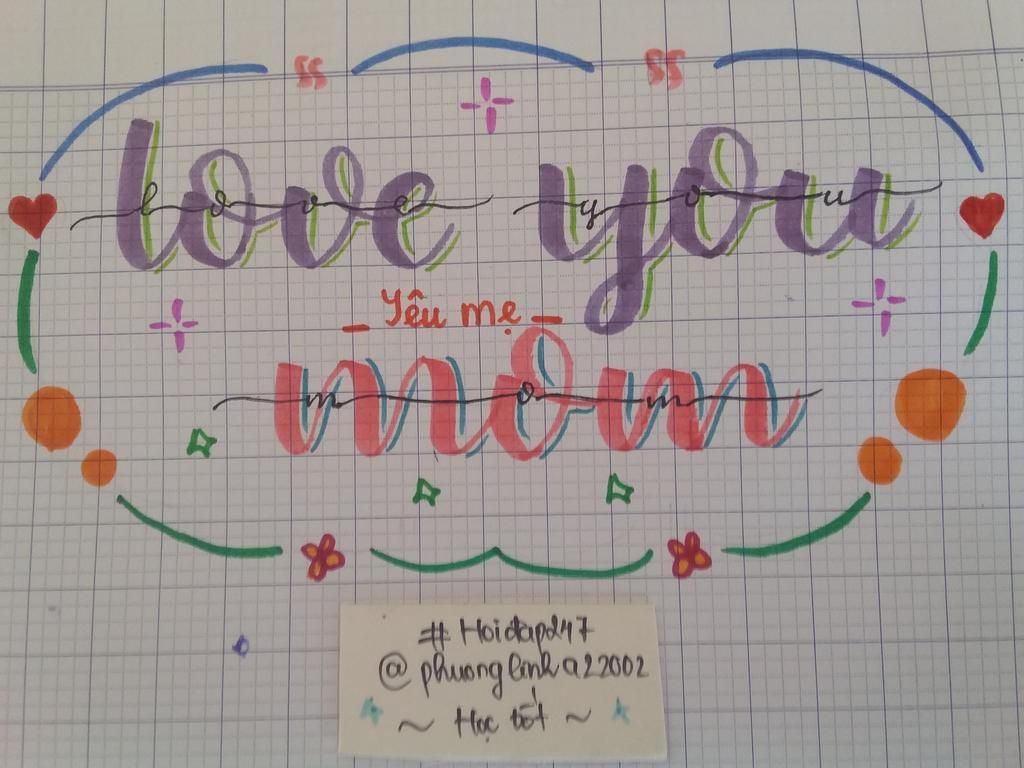 love you
love you
Yêu mẹ
mom
mom
#Hoidap247
@phuonglinha22002
~ Học tốt ~